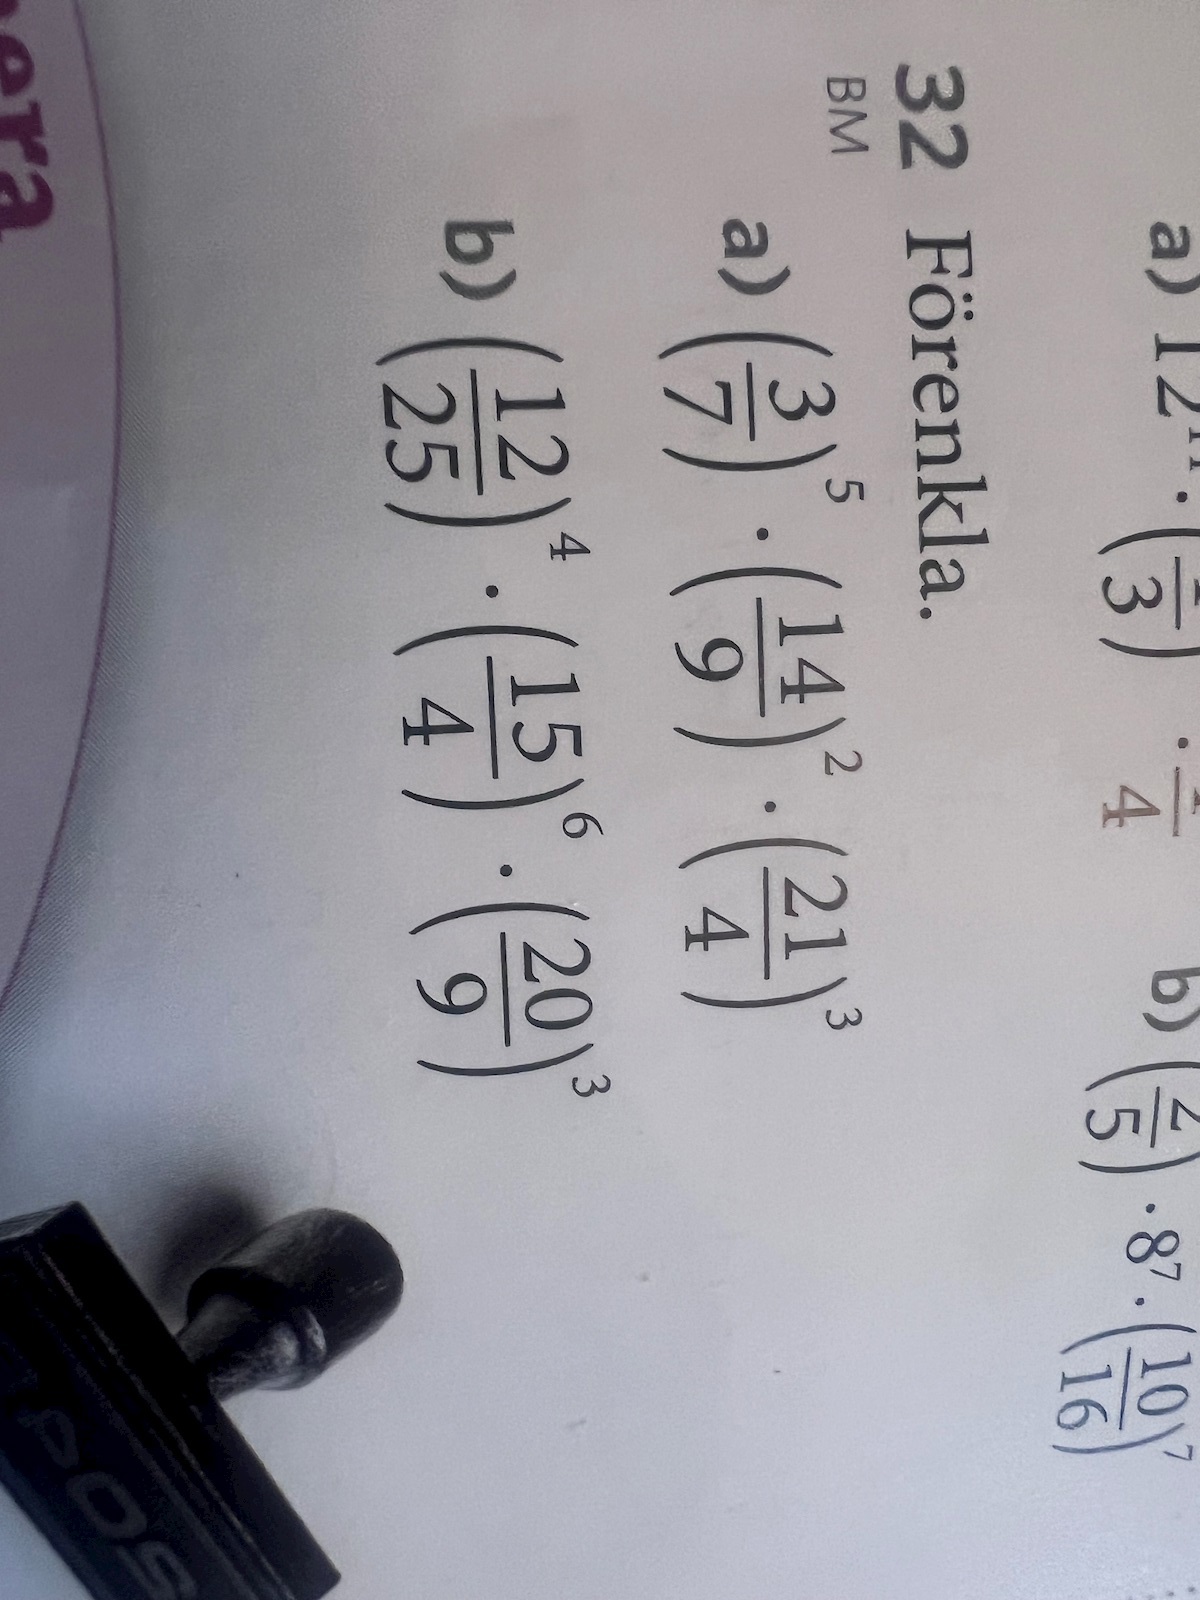 a) 12 · (  /3) ·  /4 b) (2/5) · 8⁷ · (10/16)⁷
32 Förenkla.
BM
a) (3/7)⁵ · (14/9)² · (21/4)³
b) (12/25)⁴ · (15/4)⁶ · (20/9)³